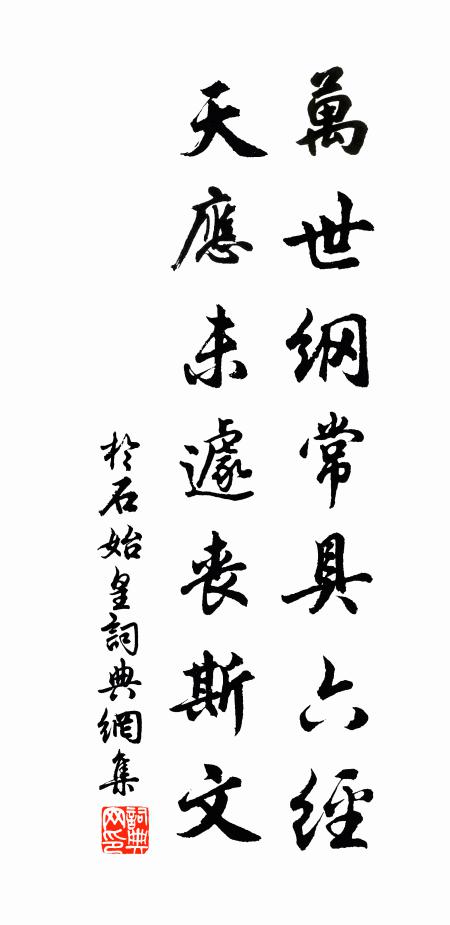 萬世綱常具六經
天應未遽喪斯文
於石始皇詞典網集
詞典
网印